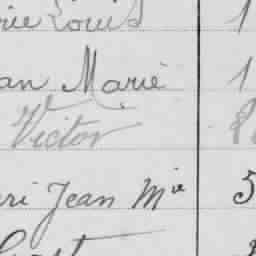 rie Louis 1
an Marie 1
Victor 8
ri Jean Mie 5